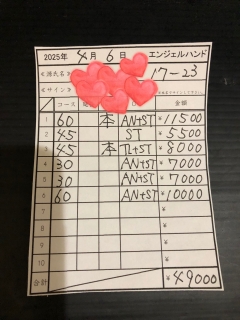 2025年 4月 6日 エンジェルハンド
≪源氏名≫ 17-23
≪サイン≫
コース 金額
1 60 本 AN+ST ¥11500
2 45 ST ¥5500
3 45 本 TL+ST ¥8000
4 30 AN+ST ¥7000
5 30 AN+ST ¥7000
6 60 AN+ST ¥10000
7 ¥
8 ¥
9 ¥
10 ¥
合計 ¥49000